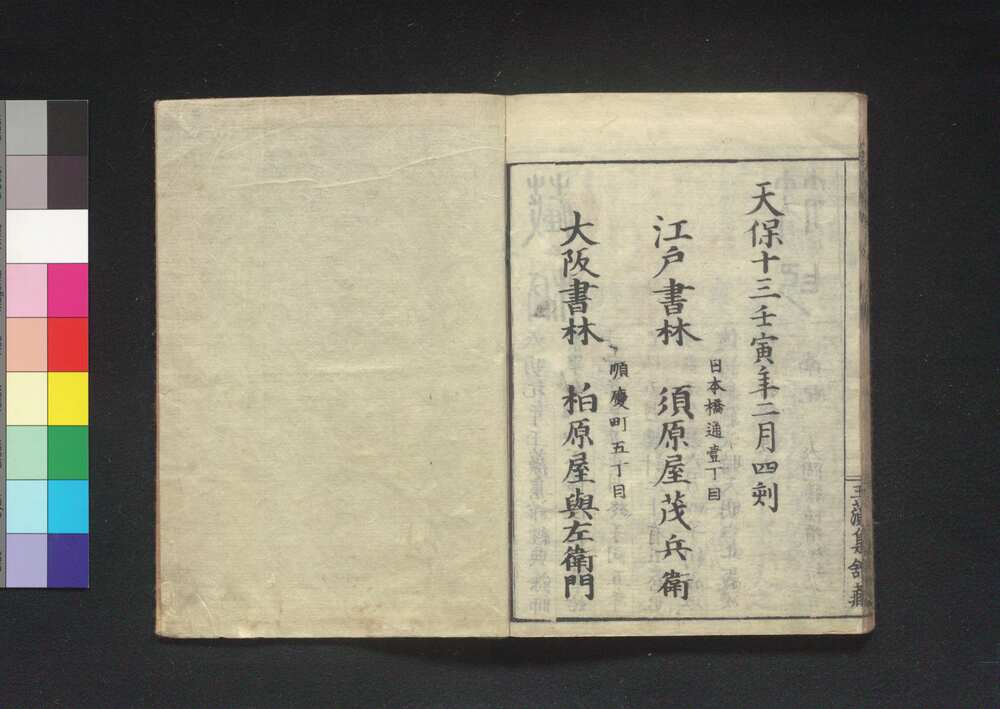 天保十三壬寅年二月四刻
日本橋通壹丁目
江戸書林 須原屋茂兵衛
順慶町五丁目
大阪書林 柏原屋與左衛門